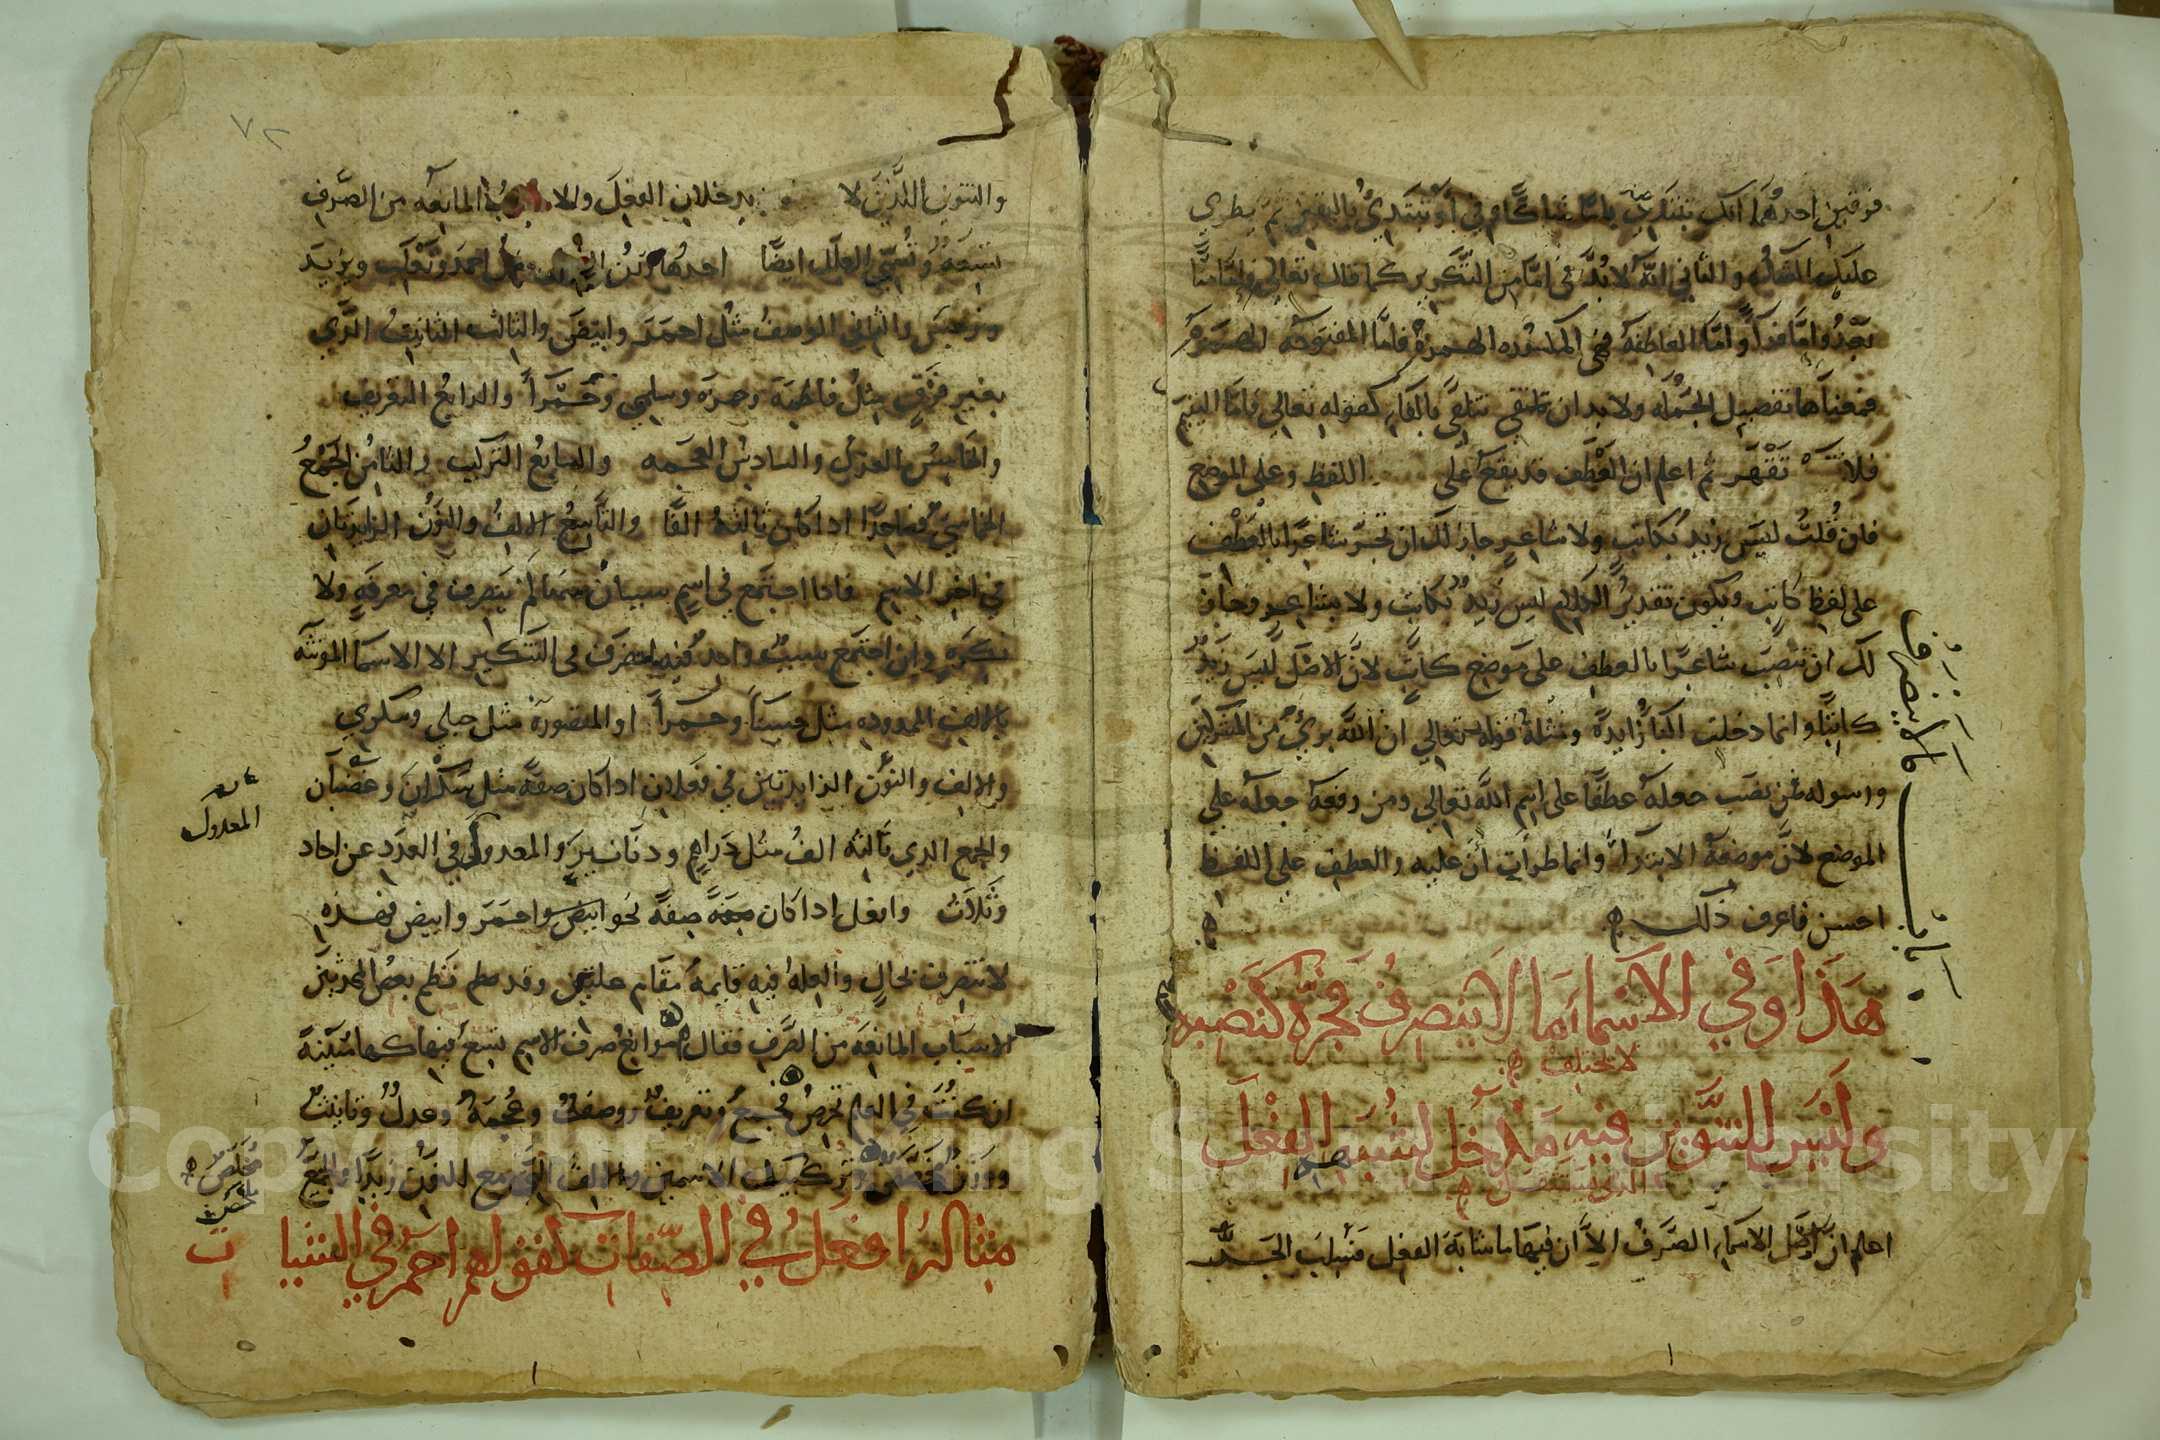 فرقين احدهما انك تبتدي باما شاكا وفي او تبتدي باليقين ثم يطري
عليك الشك والثاني انه لا بد في اما من التكرير كما قال تعالى فاما منا
بعد واما فدآ واما العاطفة فهي المكسوره الهمزة فاما المفتوحة الهمزة
فمعناها تفصيل الجملة ولا بد ان تلتقي تتلقى بالفاء كقوله تعالى فاما اليتيم
فلا تقهر ثم اعلم ان العطف قد يقع على اللفظ وعلى الموضع
فان قلت ليس زيد بكاتب ولا شاعر جاز لك ان تجر شاعرا بالعطف
على لفظ كاتب ويكون تقدير الكلام ليس زيد بكاتب ولا بشاعر وجاز
لك ان تنصب شاعرا بالعطف على موضع كاتب لان الاصل ليس زيد
كاتبا وانما دخلت البا زايدة ومثله قوله تعالى ان الله بريء من المشركين
ورسوله فمن نصب جعله عطفا على اسم الله تعالى ومن رفعه جعله على
الموضع لان موضعه الابتدآء وانما طرات ان عليه والعطف على اللفظ
احسن فاعرف ذلك
باب ما لا ينصرف
هذا وفي الاسماء ما لا ينصرف فجره كنصبه
لا يختلف
وليس للتنوين فيه مدخل لشبهه الفعل
الذي يستثقل
اعلم ان اصل الاسماء الصرف الا ان فيها ما شابه الفعل فسلب الجر
٧٢
والتنوين اللذين لا يدخلان الفعل والاسباب المانعه من الصرف
تسعة وتسمى العلل ايضا احدها وزن الفعل مثل احمد وتغلب ويزيد
ونرجس والثاني الوصف مثل احمر وابيض والثالث التانيث الذي
بغير فرق مثل فاطمة وحمزه وسلمى وحمرآ والرابع التعريف
والخامس العدل والسادس العجمه والسابع التركيب والثامن الجمع
الخماسي فصاعدا اذا كان ثالثه الفا والتاسع الالف والنون الزايدتان
في اخر الاسم فاذا اجتمع في اسم سببان منها لم ينصرف في معرفة ولا
نكرة وان اجتمع سبب واحد فيه انصرف في التنكير الا الاسما المونثه
بالالف الممدوده مثل حسنآ وحمرآ او المقصورة مثل حبلى وسكرى
والالف والنون الزايدتين في فعلان اذا كان صفة مثل سكران وغضبان
والجمع الذي ثالثه الف مثل دراهم ودنانير والمعدول في العدد عن احاد
وثلاث وافعل اذا كان صفة نحو ابيض واحمر وابيض فهذه
المعدول
لا تنصرف بحال والعلة فيه قايمة مقام علتين وقد نظم بعض المحدثين
الاسباب المانعة من الصرف فقال موانع صرف الاسم تسع فهاكها مبينة
ان كنت في العلم تحرص فجمع وتعريف ووصف وعجمة وعدل وتانيث
ووزن مخصص وتركيبك الاسمين والالف التي مع النون زيدا والجميع
ملخص
مثاله افعل في الصفات كقولهم احمر في الشيات